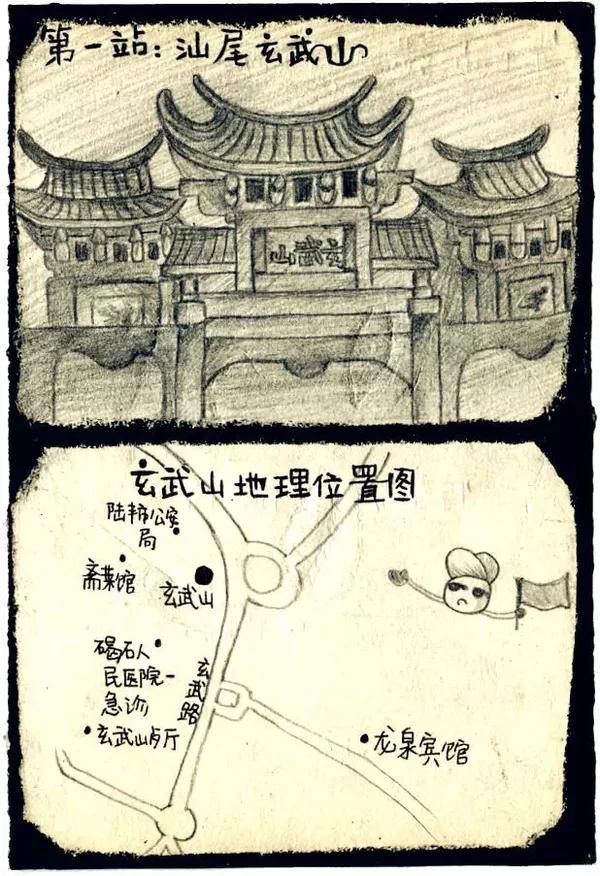 第一站：汕尾玄武山
山武玄
玄武山地理位置图
陆丰市公安
局
斋菜馆
玄武山
碣石人
民医院一
急诊
玄武路
玄武山 厅
龙泉宾馆